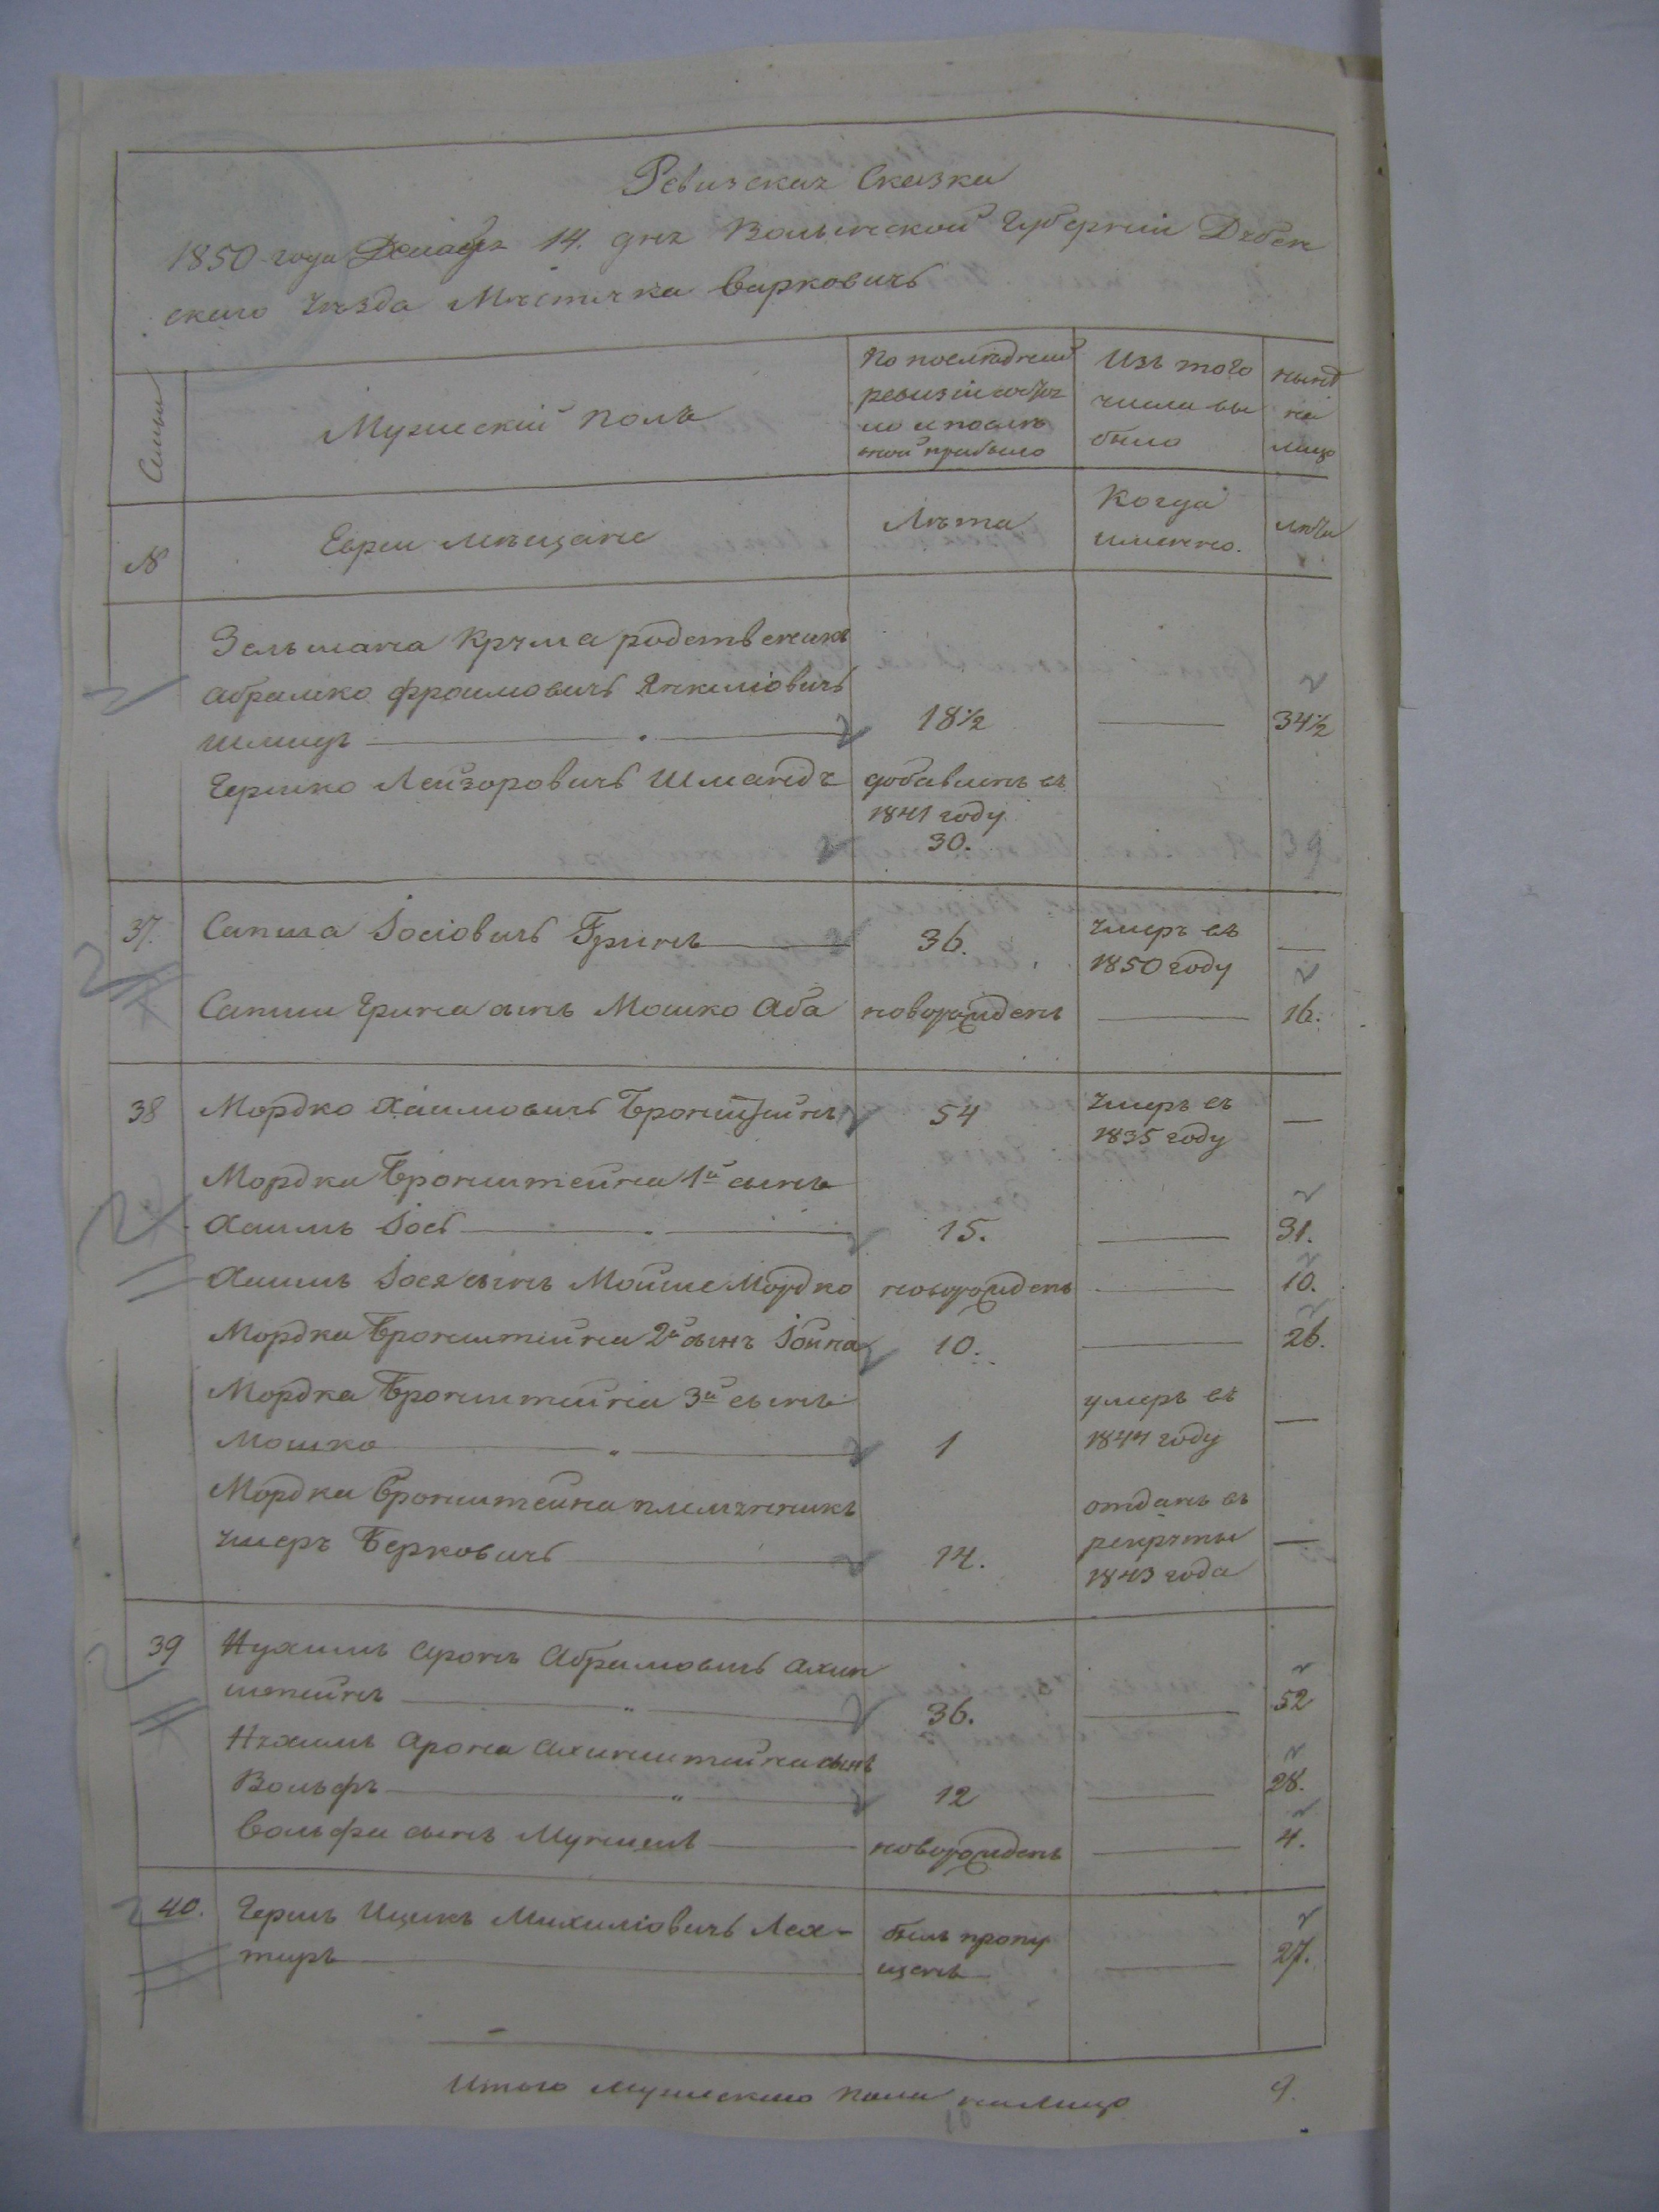 Ревизская Сказка
1850 года Декабря 14. дня Волынской Губерніи Дубен
скаго Уѣзда Мѣстечка Варковичъ
Семьи
Мужескій полъ
По последней
ревизіи состоя
ло и послѣ
оной прибыло
Изъ того
числа вы
было
нынѣ
на
лицо
№
Евреи мѣщане
Лѣта
Когда
именно.
лѣта
Зельмана Крума родственикъ
Абрамко Фроимовичъ Янкиліовичъ
18½ — 34½
Гершко Лейзоровичъ Шмандъ добавленъ въ
1841 году
30.
39
37. Сапша Іосіовичъ Гринъ — 36. Умеръ въ —
1850 году
Сапши Грина сынъ Мошко Аба новорожденъ — 16.
38 Мордко Хаимовичъ Бронштейнъ 54 Умеръ въ —
1835 году
Мордка Бронштейна 1й сынъ
Хаимъ Іось — 15. — 31.
Хаимъ Іося сынъ Мойше Мордко новорожденъ — 10.
Мордка Бронштейна 2й сынъ Іойна 10. — 26.
Мордка Бронштейна 3й сынъ
Мошко — 1 умеръ въ —
1844 году
Мордка Бронштейна племянникъ
Умеръ Берковичъ — 14. отданъ въ
рекруты —
1843 года
39 Нухимъ Аронъ Абрамовичъ Ахин
штейнъ — 36. — 52
Нухимъ Арона Ахинштейна сынъ
Вольфъ — 12 — 28.
Вольфа сынъ — новорожденъ — 4.
40. Гершъ Ицикъ Михиліовичъ Лех-
тиръ — былъ пропу
щенъ — 27.
Итого мужескаго пола налицо 9.